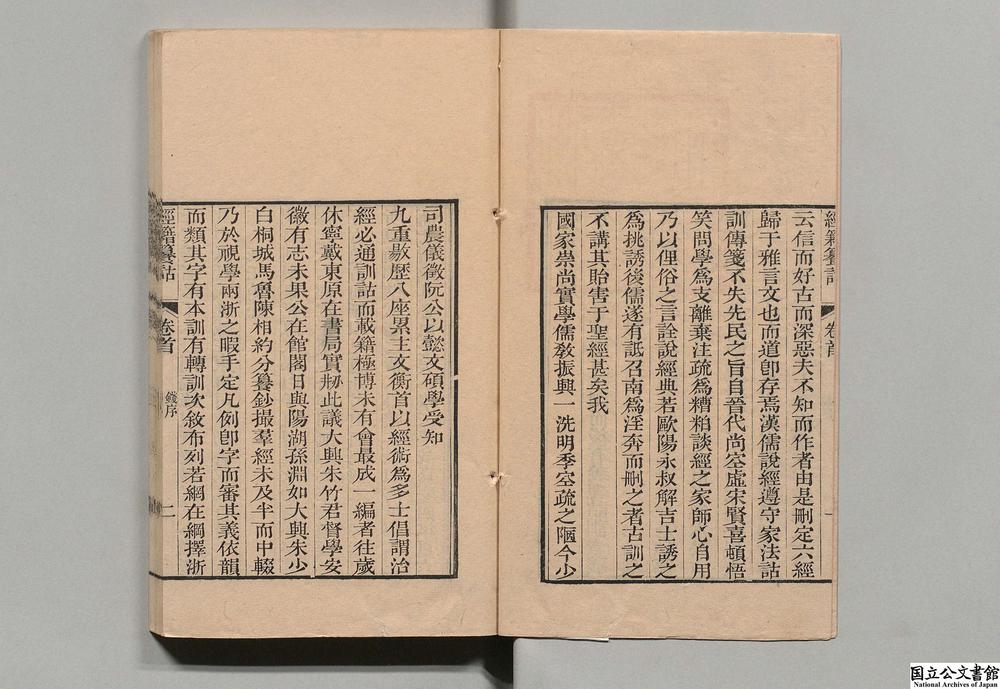 經籍籑詁 卷首
云信而好古而深惡夫不知而作者由是刪定六經
歸于雅言文也而道卽存焉漢儒說經遵守家法詁
訓傳箋不失先民之旨自晉代尚空虛宋賢喜頓悟
笑問學爲支離棄注疏爲糟粕談經之家師心自用
乃以俚俗之言詮說經典若歐陽永叔解吉士誘之
爲挑誘後儒遂有詆召南爲淫奔而刪之者古訓之
不講其貽害于聖經甚矣我
國家崇尚實學儒敎振興一洗明季空疏之陋今少
司農儀徵阮公以懿文碩學受知
九重敭歷八座累主文衡首以經術爲多士倡謂治
經必通訓詁而載籍極博未有會最成一編者往歲
休寧戴東原在書局實刱此議大興朱竹君督學安
徽有志未果公在館閣日與陽湖孫淵如大興朱少
白桐城馬魯陳相約分籑鈔撮羣經未及半而中輟
乃於視學兩浙之暇手定凡例卽字而審其義依韻
而類其字有本訓有轉訓次敘布列若網在綱擇浙
經籍籑詁 卷首 錢序 二
国立公文書館
National Archives of Japan